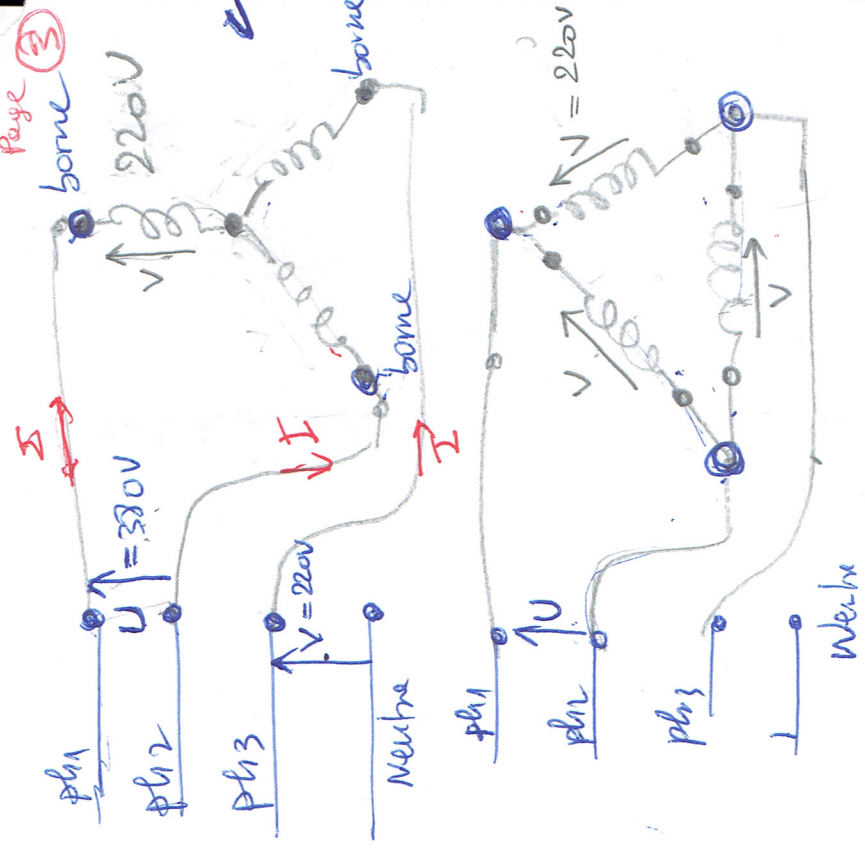 Page 3
borne
220V
borne
V
borne
I
I
I
U = 380V
V = 220V
ph1
ph2
ph3
Neutre
V = 220V
V
V
U
ph1
ph2
ph3
Neutre